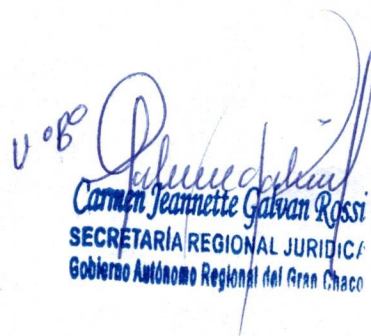 V°B°
Carmen Jeannette Galvan Rossi
SECRETARÍA REGIONAL JURIDICA
Gobierno Autónomo Regional del Gran Chaco